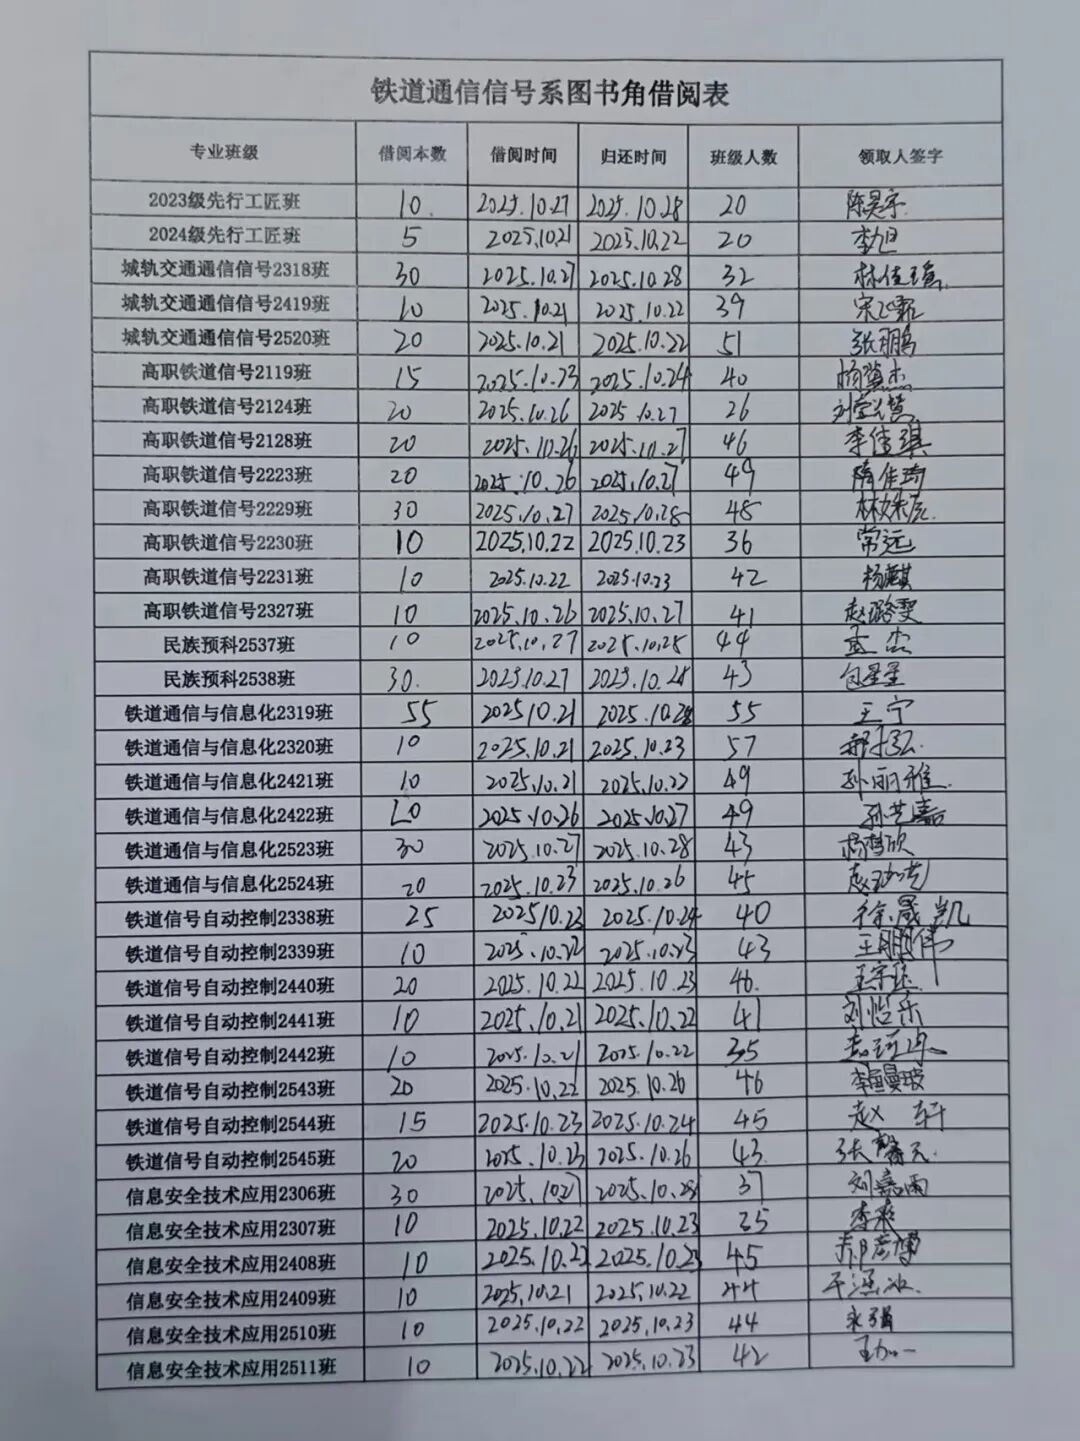 铁道通信信号系图书角借阅表
专业班级 借阅本数 借阅时间 归还时间 班级人数 领取人签字
2023级先行工匠班 10 2025.10.27 2025.10.28 20 陈昊宇
2024级先行工匠班 5 2025.10.21 2025.10.22 20 李旭
城轨交通通信信号2318班 30 2025.10.27 2025.10.28 32
城轨交通通信信号2419班 10 2025.10.21 2025.10.22 39
城轨交通通信信号2520班 20 2025.10.21 2025.10.22 51 张鹏
高职铁道信号2119班 15 2025.10.23 2025.10.24 40 杨冀杰
高职铁道信号2124班 20 2025.10.26 2025.10.27 26
高职铁道信号2128班 20 2025.10.26 2025.10.27 46 李佳琪
高职铁道信号2223班 20 2025.10.26 2025.10.27 49 隋佳琦
高职铁道信号2229班 30 2025.10.27 2025.10.28 48
高职铁道信号2230班 10 2025.10.22 2025.10.23 36 常远
高职铁道信号2231班 10 2025.10.22 2025.10.23 42 杨麒
高职铁道信号2327班 10 2025.10.26 2025.10.27 41 赵璐雯
民族预科2537班 10 2025.10.27 2025.10.28 44
民族预科2538班 30. 2025.10.27 2025.10.28 43 包星星
铁道通信与信息化2319班 55 2025.10.21 2025.10.28 55 王宁
铁道通信与信息化2320班 10 2025.10.21 2025.10.23 57
铁道通信与信息化2421班 10 2025.10.21 2025.10.22 49 孙丽雅
铁道通信与信息化2422班 20 2025.10.26 2025.10.27 49 孙艺嘉
铁道通信与信息化2523班 30 2025.10.27 2025.10.28 43
铁道通信与信息化2524班 20 2025.10.23 2025.10.26 45
铁道信号自动控制2338班 25 202510.23 2025.10.24 40 徐晟凯
铁道信号自动控制2339班 10 2025.10.22 2025.10.23 43 王鹏伟
铁道信号自动控制2440班 20 2025.10.22 2025.10.23 46. 王宇廷
铁道信号自动控制2441班 10 2025.10.21 2025.10.22 41 刘怡乐
铁道信号自动控制2442班 10 2025.10.21 2025.10.22 35
铁道信号自动控制2543班 20 2025.10.22 2025.10.26 46 李曼玻
铁道信号自动控制2544班 15 2025.10.23 2025.10.24 45 赵轩
铁道信号自动控制2545班 20 2025.10.23 2025.10.26 43 张馨元
信息安全技术应用2306班 30 2025.1027 2025.10.28 37 刘嘉雨
信息安全技术应用2307班 10 2025.10.22 2025.10.23 35 李爽
信息安全技术应用2408班 10 2025.10.22 2025.10.23 45
信息安全技术应用2409班 10 2025.10.21 2025.10.22 44
信息安全技术应用2510班 10 2025.10.22 2025.10.23 44 永强
信息安全技术应用2511班 10 2025.10.22 2025.10.23 42